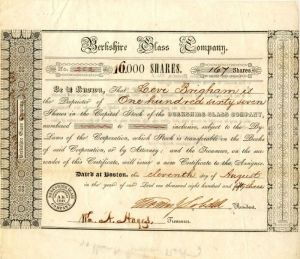 Berkshire Glass Company.
No.
16,000 SHARES.
167 Shares
Be it Known, That Levi Brigham is
the Proprietor of One hundred sixty seven
Shares in the Capital Stock of the BERKSHIRE GLASS COMPANY,
numbered inclusive, subject to the By-
Laws of the Corporation, which Stock is transferable on the Books
of said Corporation, or by Attorney; and the Treasurer, on the sur-
render of this Certificate, will issue a new Certificate to the Assignee.
Dated at Boston, the eleventh day of August
in the year of our Lord one thousand eight hundred and fifty three
President.
Wm. A. Hayes Treasurer.